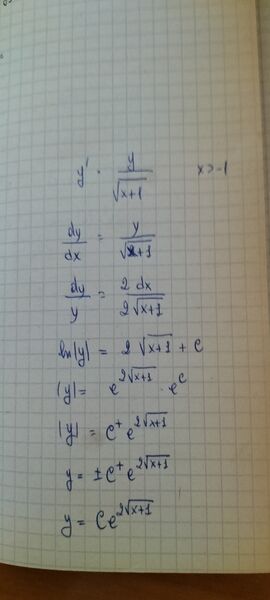 y' = y/√(x+1) x>-1
dy/dx = y/√(x+1)
dy/y = 2 dx/2√(x+1)
ln|y| = 2√(x+1) + C
|y| = e^(2√(x+1)) · e^C
|y| = C⁺ e^(2√(x+1))
y = ±C⁺ e^(2√(x+1))
y = Ce^(2√(x+1))